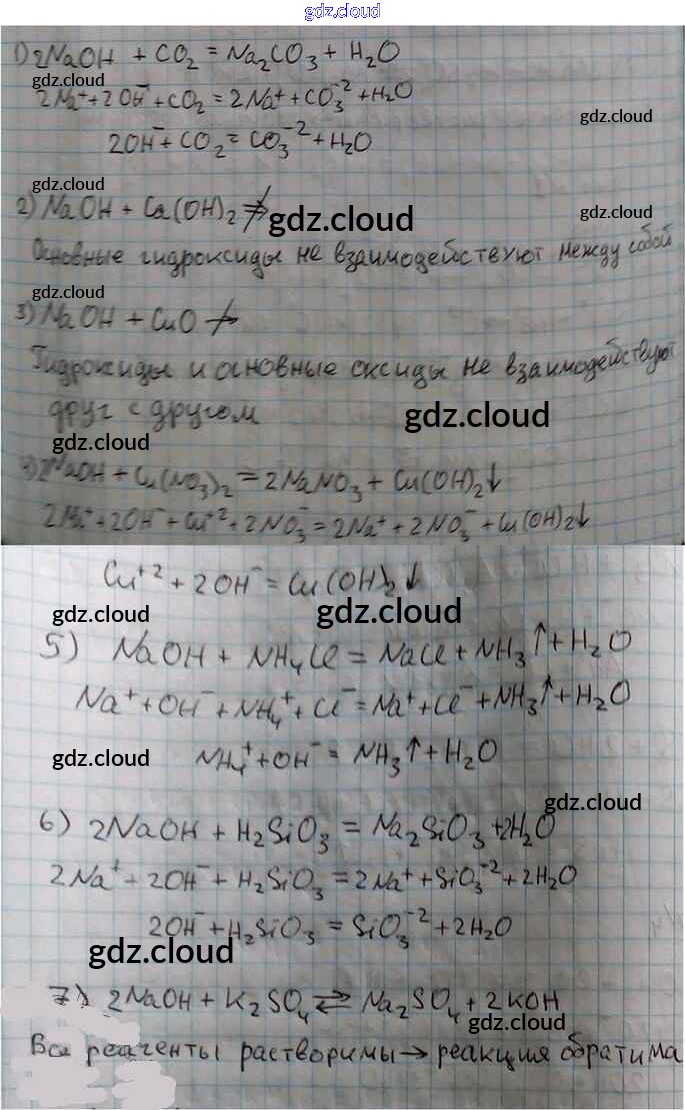 gdz.cloud
1) 2NaOH + CO₂ = Na₂CO₃ + H₂O
gdz.cloud
2Na⁺ + 2OH⁻ + CO₂ = 2Na⁺ + CO₃⁻² + H₂O
gdz.cloud
2OH⁻ + CO₂ = CO₃⁻² + H₂O
gdz.cloud
2) NaOH + Ca(OH)₂ ⇏
gdz.cloud
gdz.cloud
Основные гидроксиды не взаимодействуют между собой
gdz.cloud
3) NaOH + CuO ↛
Гидроксиды и основные оксиды не взаимодействуют
друг с другом
gdz.cloud
gdz.cloud
2NaOH + Cu(NO₃)₂ = 2NaNO₃ + Cu(OH)₂↓
2Na⁺ + 2OH⁻ + Cu⁺² + 2NO₃⁻ = 2Na⁺ + 2NO₃⁻ + Cu(OH)₂↓
Cu⁺² + 2OH⁻ = Cu(OH)₂↓
gdz.cloud
gdz.cloud
5) NaOH + NH₄Cl = NaCl + NH₃↑ + H₂O
Na⁺ + OH⁻ + NH₄⁺ + Cl⁻ = Na⁺ + Cl⁻ + NH₃↑ + H₂O
gdz.cloud
NH₄⁺ + OH⁻ = NH₃↑ + H₂O
gdz.cloud
6) 2NaOH + H₂SiO₃ = Na₂SiO₃ + 2H₂O
2Na⁺ + 2OH⁻ + H₂SiO₃ = 2Na⁺ + SiO₃⁻² + 2H₂O
2OH⁻ + H₂SiO₃ = SiO₃⁻² + 2H₂O
gdz.cloud
7) 2NaOH + K₂SO₄ ⇄ Na₂SO₄ + 2KOH
gdz.cloud
Все реагенты растворимы → реакция обратима